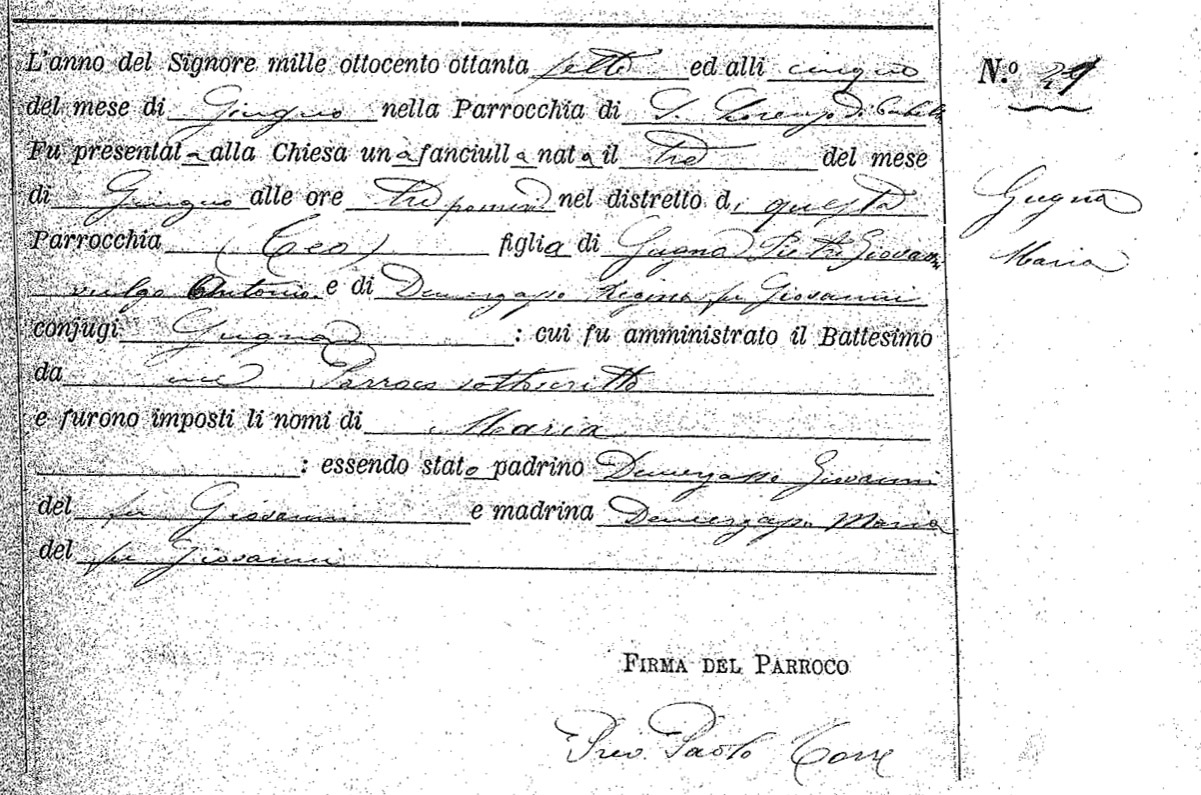 L'anno del Signore mille ottocento ottanta sette ed alli cinque
del mese di Giugno nella Parrocchia di S. Lorenzo di Cabella
Fu presentata alla Chiesa una fanciulla nata il tre del mese
di Giugno alle ore tre pomerid. nel distretto di questa
Parrocchia (Teo) figlia di Gugna Pietro Giovanni
vulgo Antonio e di Demergasso Regina fu Giovanni
conjugi Gugna : cui fu amministrato il Battesimo
da me Parroco sottoscritto
e furono imposti li nomi di Maria
: essendo stato padrino Demergasso Giovanni
del fu Giovanni e madrina Demergasso Maria
del fu Giovanni
FIRMA DEL PARROCO
Prev. Paolo Torre
N.º 29
Gugna
Maria